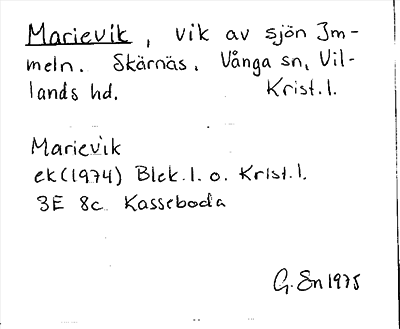 Marievik, vik av sjön Im-
meln. Skärnäs. Vånga sn, Vil-
lands hd. Krist. l.
Marievik
ek (1974) Blek. l. o. Krist. l.
3E 8c Kasseboda
G. Sn 1975